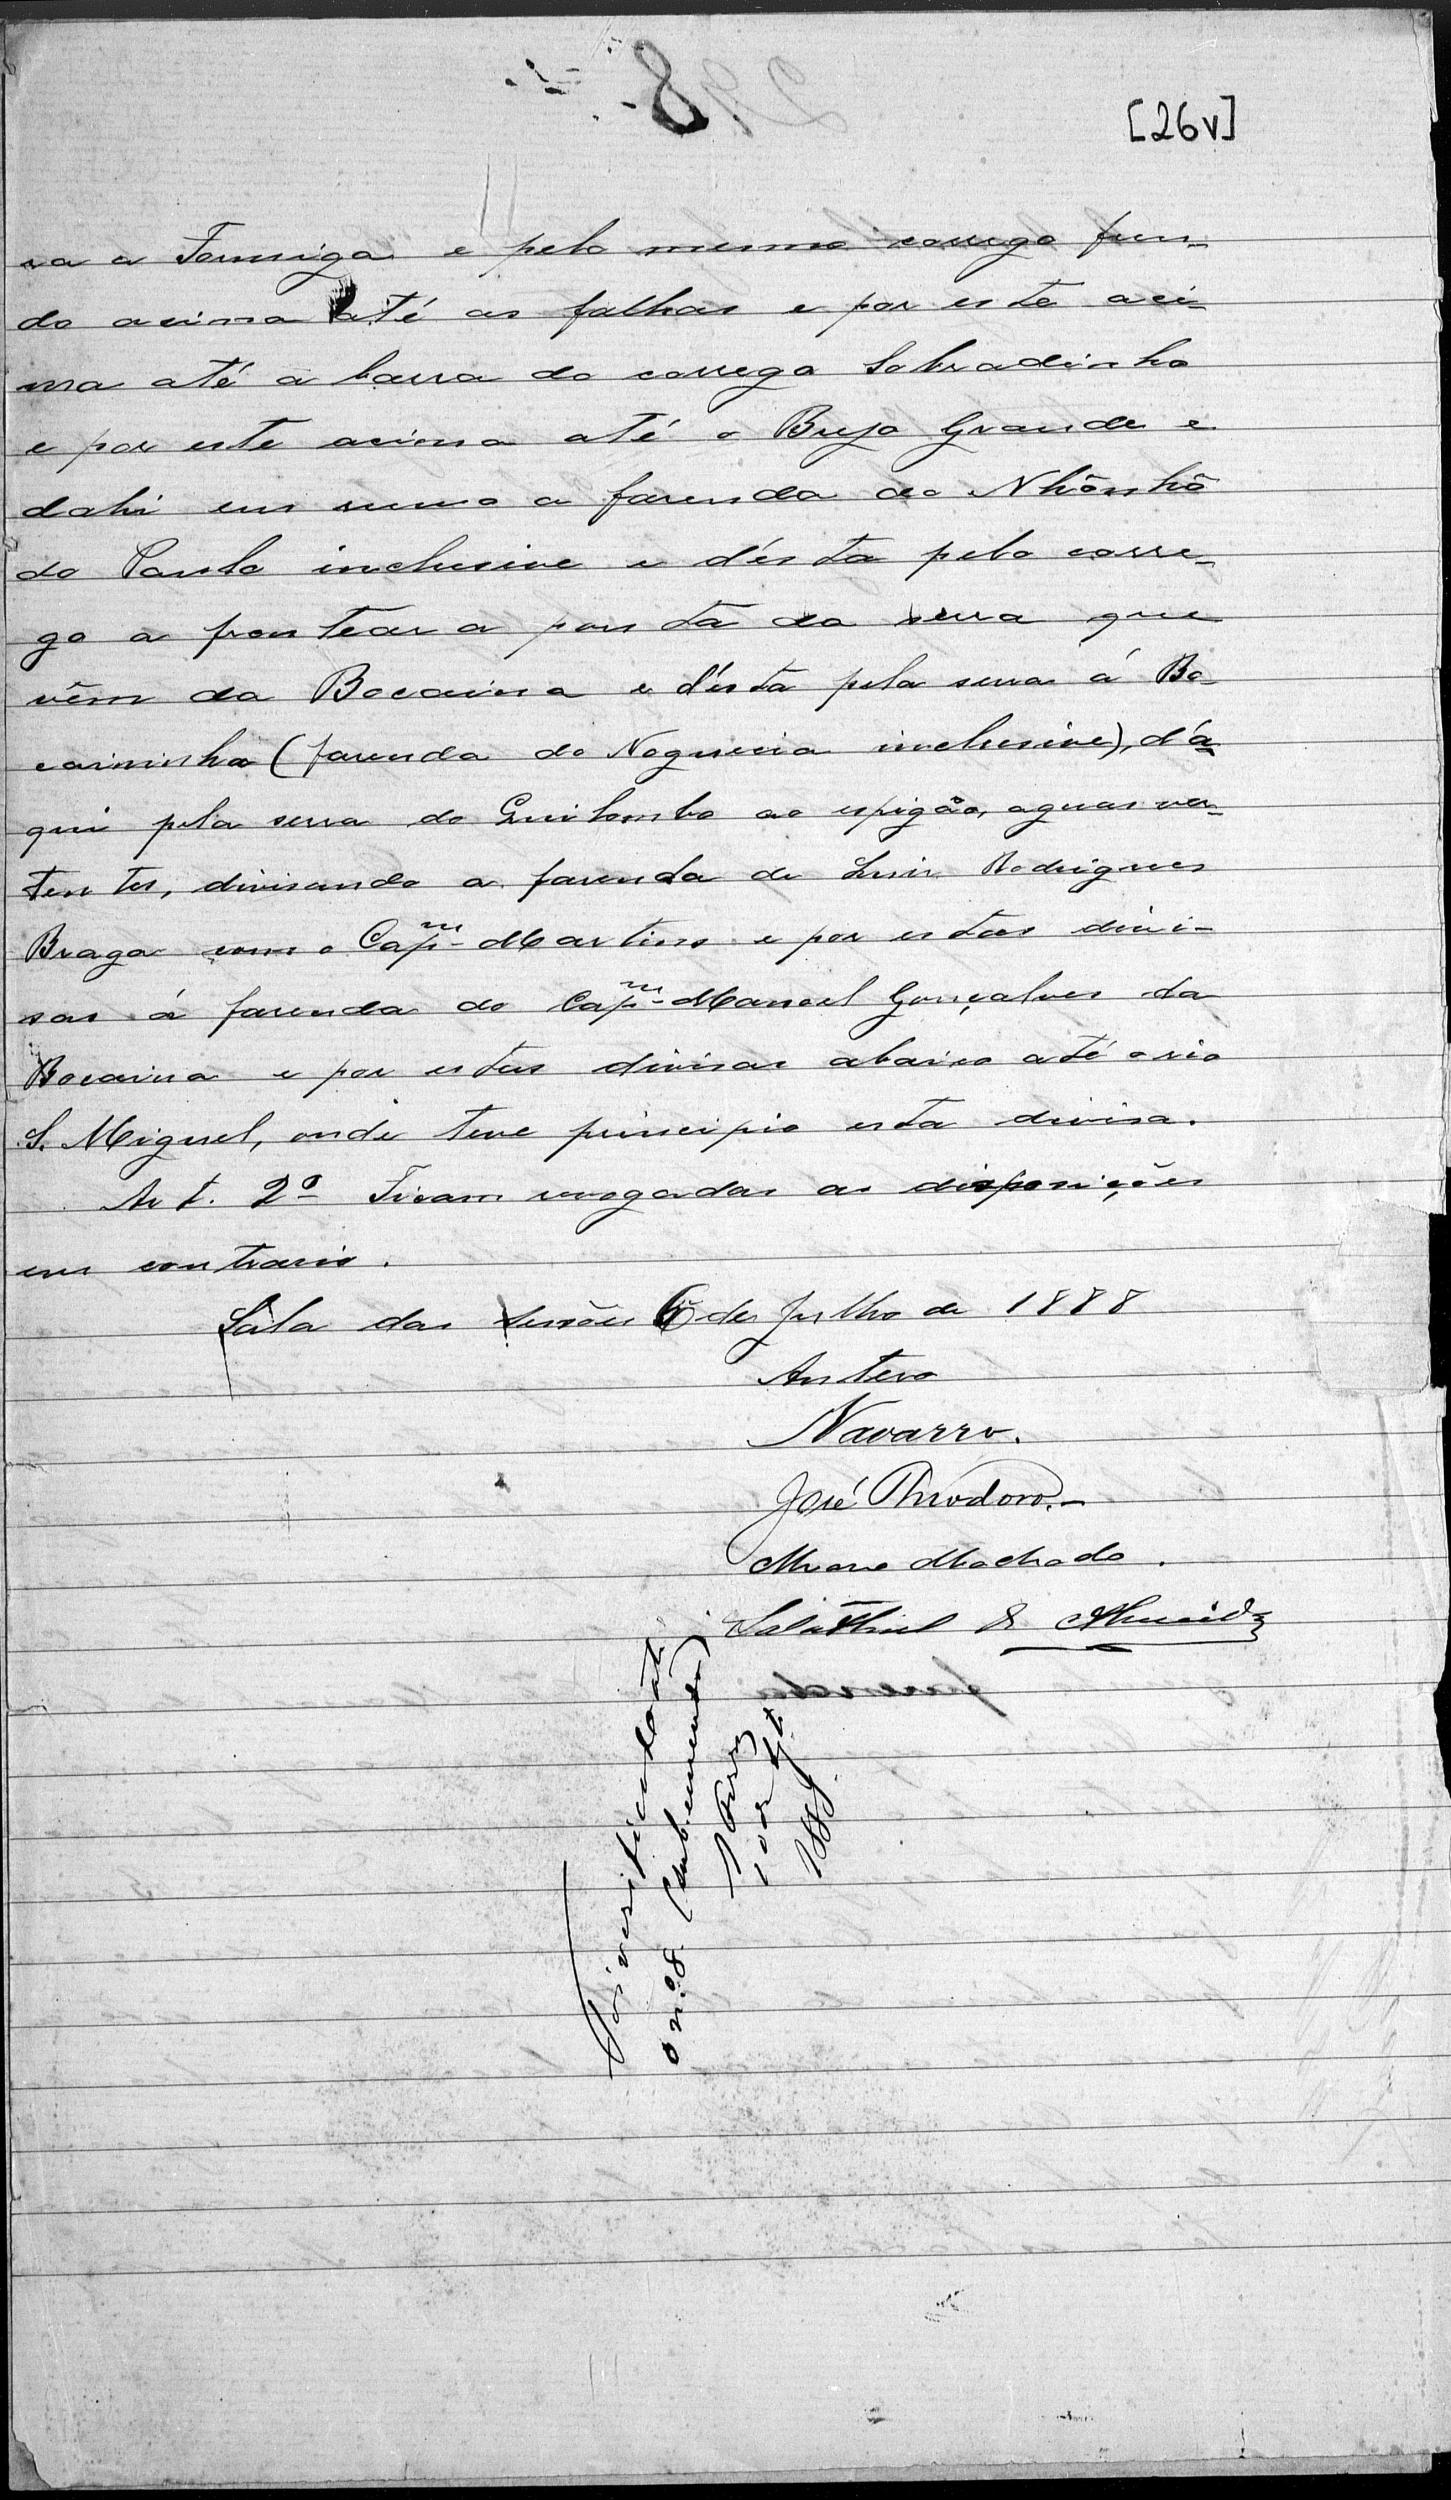 8
[26v]
ra a Formiga e pelo mesmo corrego fun-
do acima até as falhas e por este aci-
ma até a barra do corrego Sobradinho
e por este acima até o Brejo Grande e
dahi em rumo a fazenda do Nhônhô
do Paulo inclusive e désta pelo corre-
go a frontear a ponta da serra que
vêm da Bocaina e désta pela serra á Bo-
caininha (fazenda do Nogueira inclusive), d'a-
qui pela serra do Quilombo ao espigão, aguas ver-
tentes, divisando a fazenda de Luiz Rodrigues
Braga com o Capm Martins e por estas divi-
sas á fazenda do Capm Manoel Gonçalves da
Bocaina e por estas divisas abaixo até o rio
S. Miguel, onde teve principio esta divisa.
Art. 2º Ficam revogadas as disposições
em contrario.
Sala das sessões 6 de Julho de 1888
Antero
Navarro.
José Theodoro.
Alvaro Machado.
Salathiel de Almeida
o n.º 8 (sub emenda)
10 de